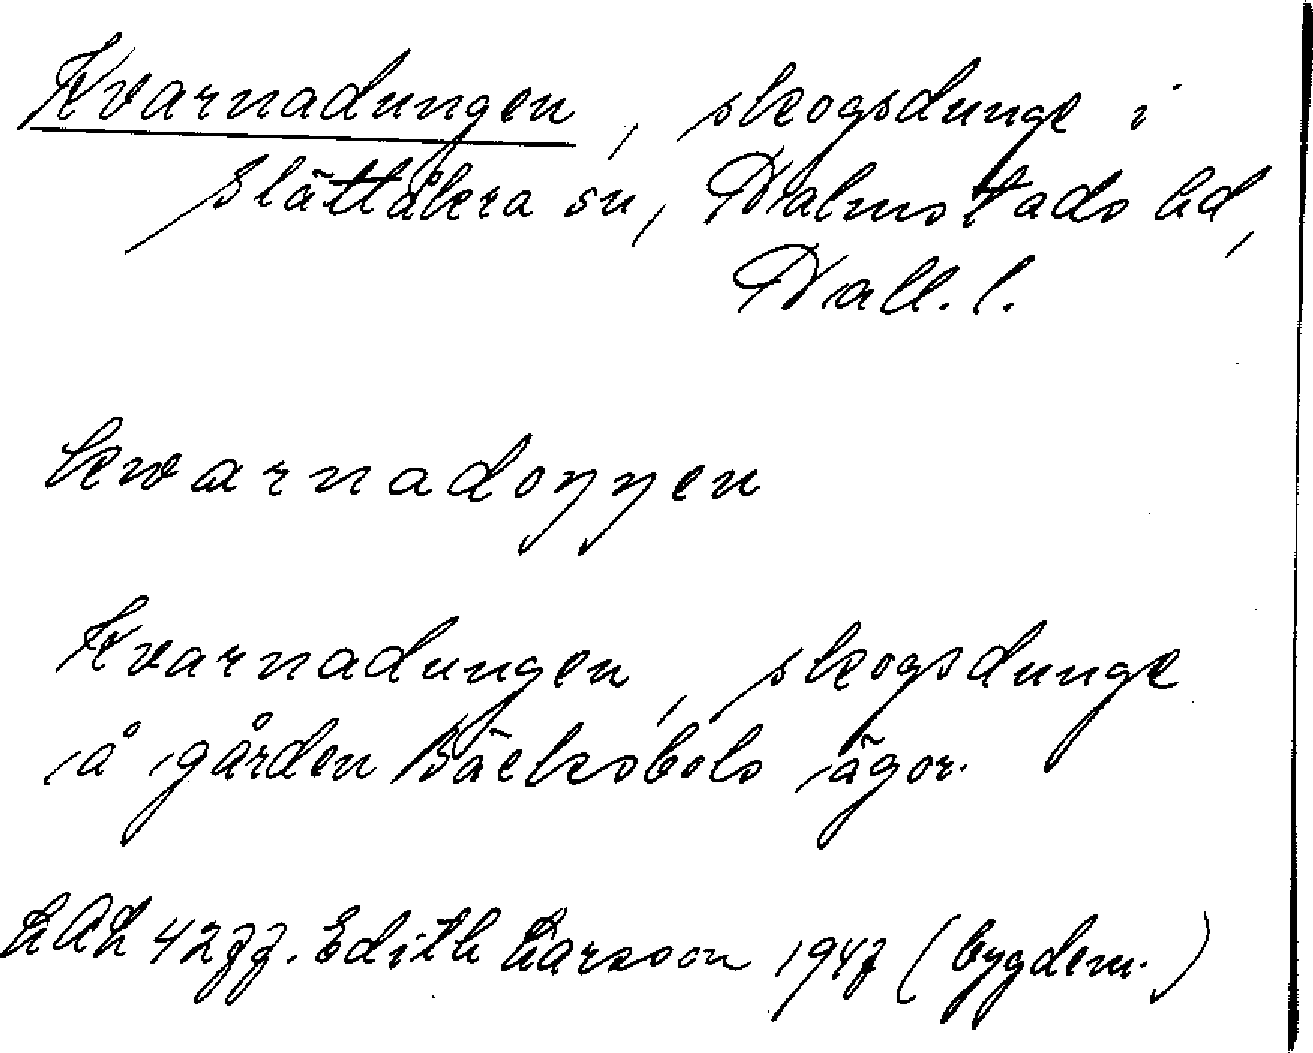 Kvarnadungen, skogsdunge i
Slättåkra sn, Halmstads hd,
Hall. l.
kvarnadoŋŋen
Kvarnadungen, skogsdunge
å gården Bäcksbols ägor.
LAL 4277. Edith Larsson 1947 (bygdem.)